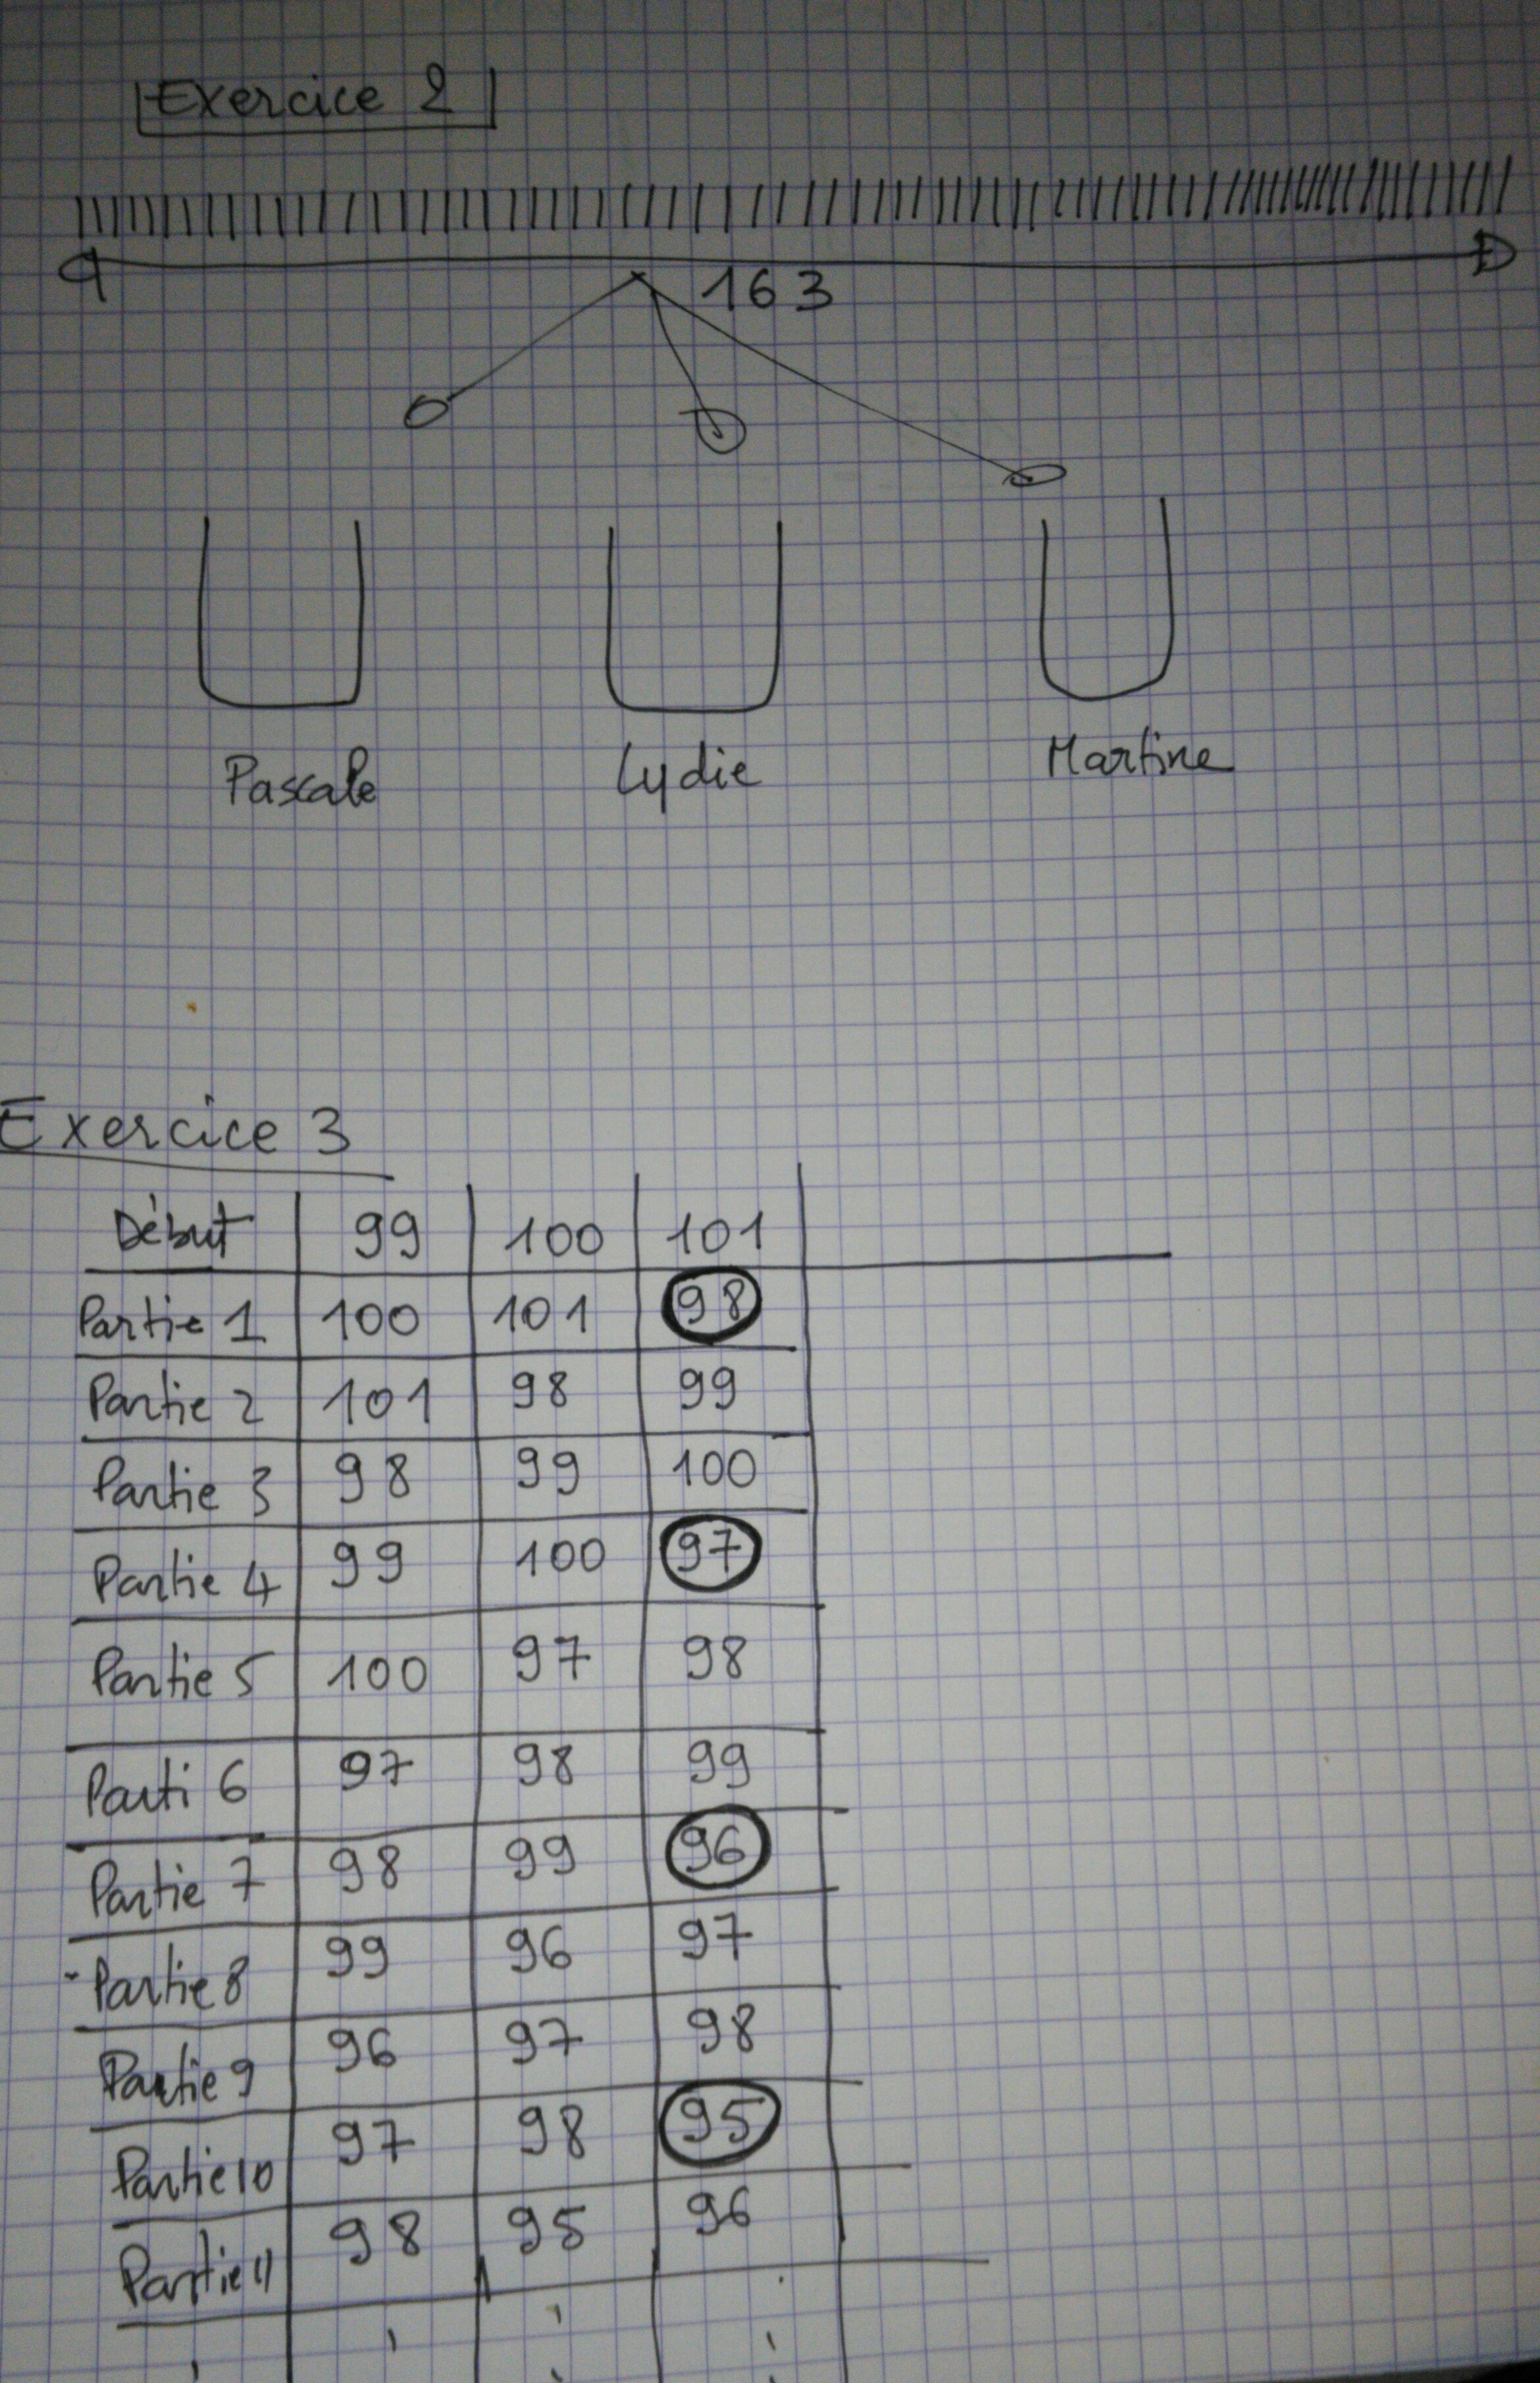 Exercice 2
163
Pascale Lydie Martine
Exercice 3
Début 99 100 101
Partie 1 100 101 98
Partie 2 101 98 99
Partie 3 98 99 100
Partie 4 99 100 97
Partie 5 100 97 98
Parti 6 97 98 99
Partie 7 98 99 96
Partie 8 99 96 97
Partie 9 96 97 98
Partie 10 97 98 95
Partie 11 98 95 96